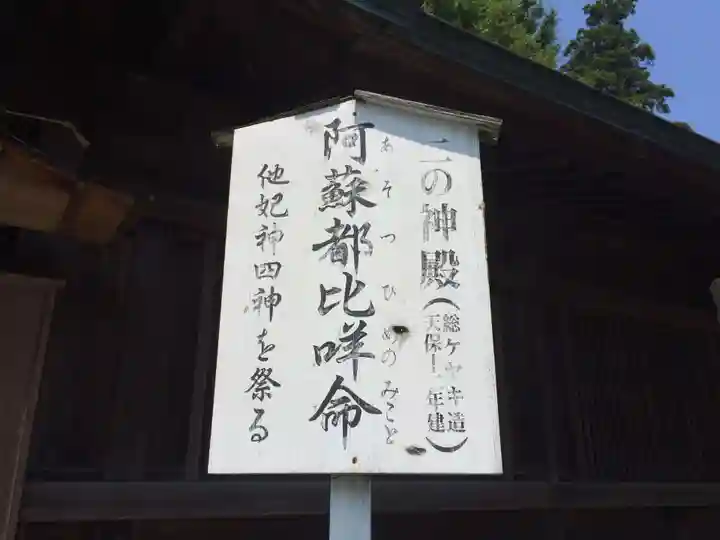 二の神殿(総ケヤキ造
天保十二年建)
阿蘇都比咩命
あそつひめのみこと
他妃神四神を祭る